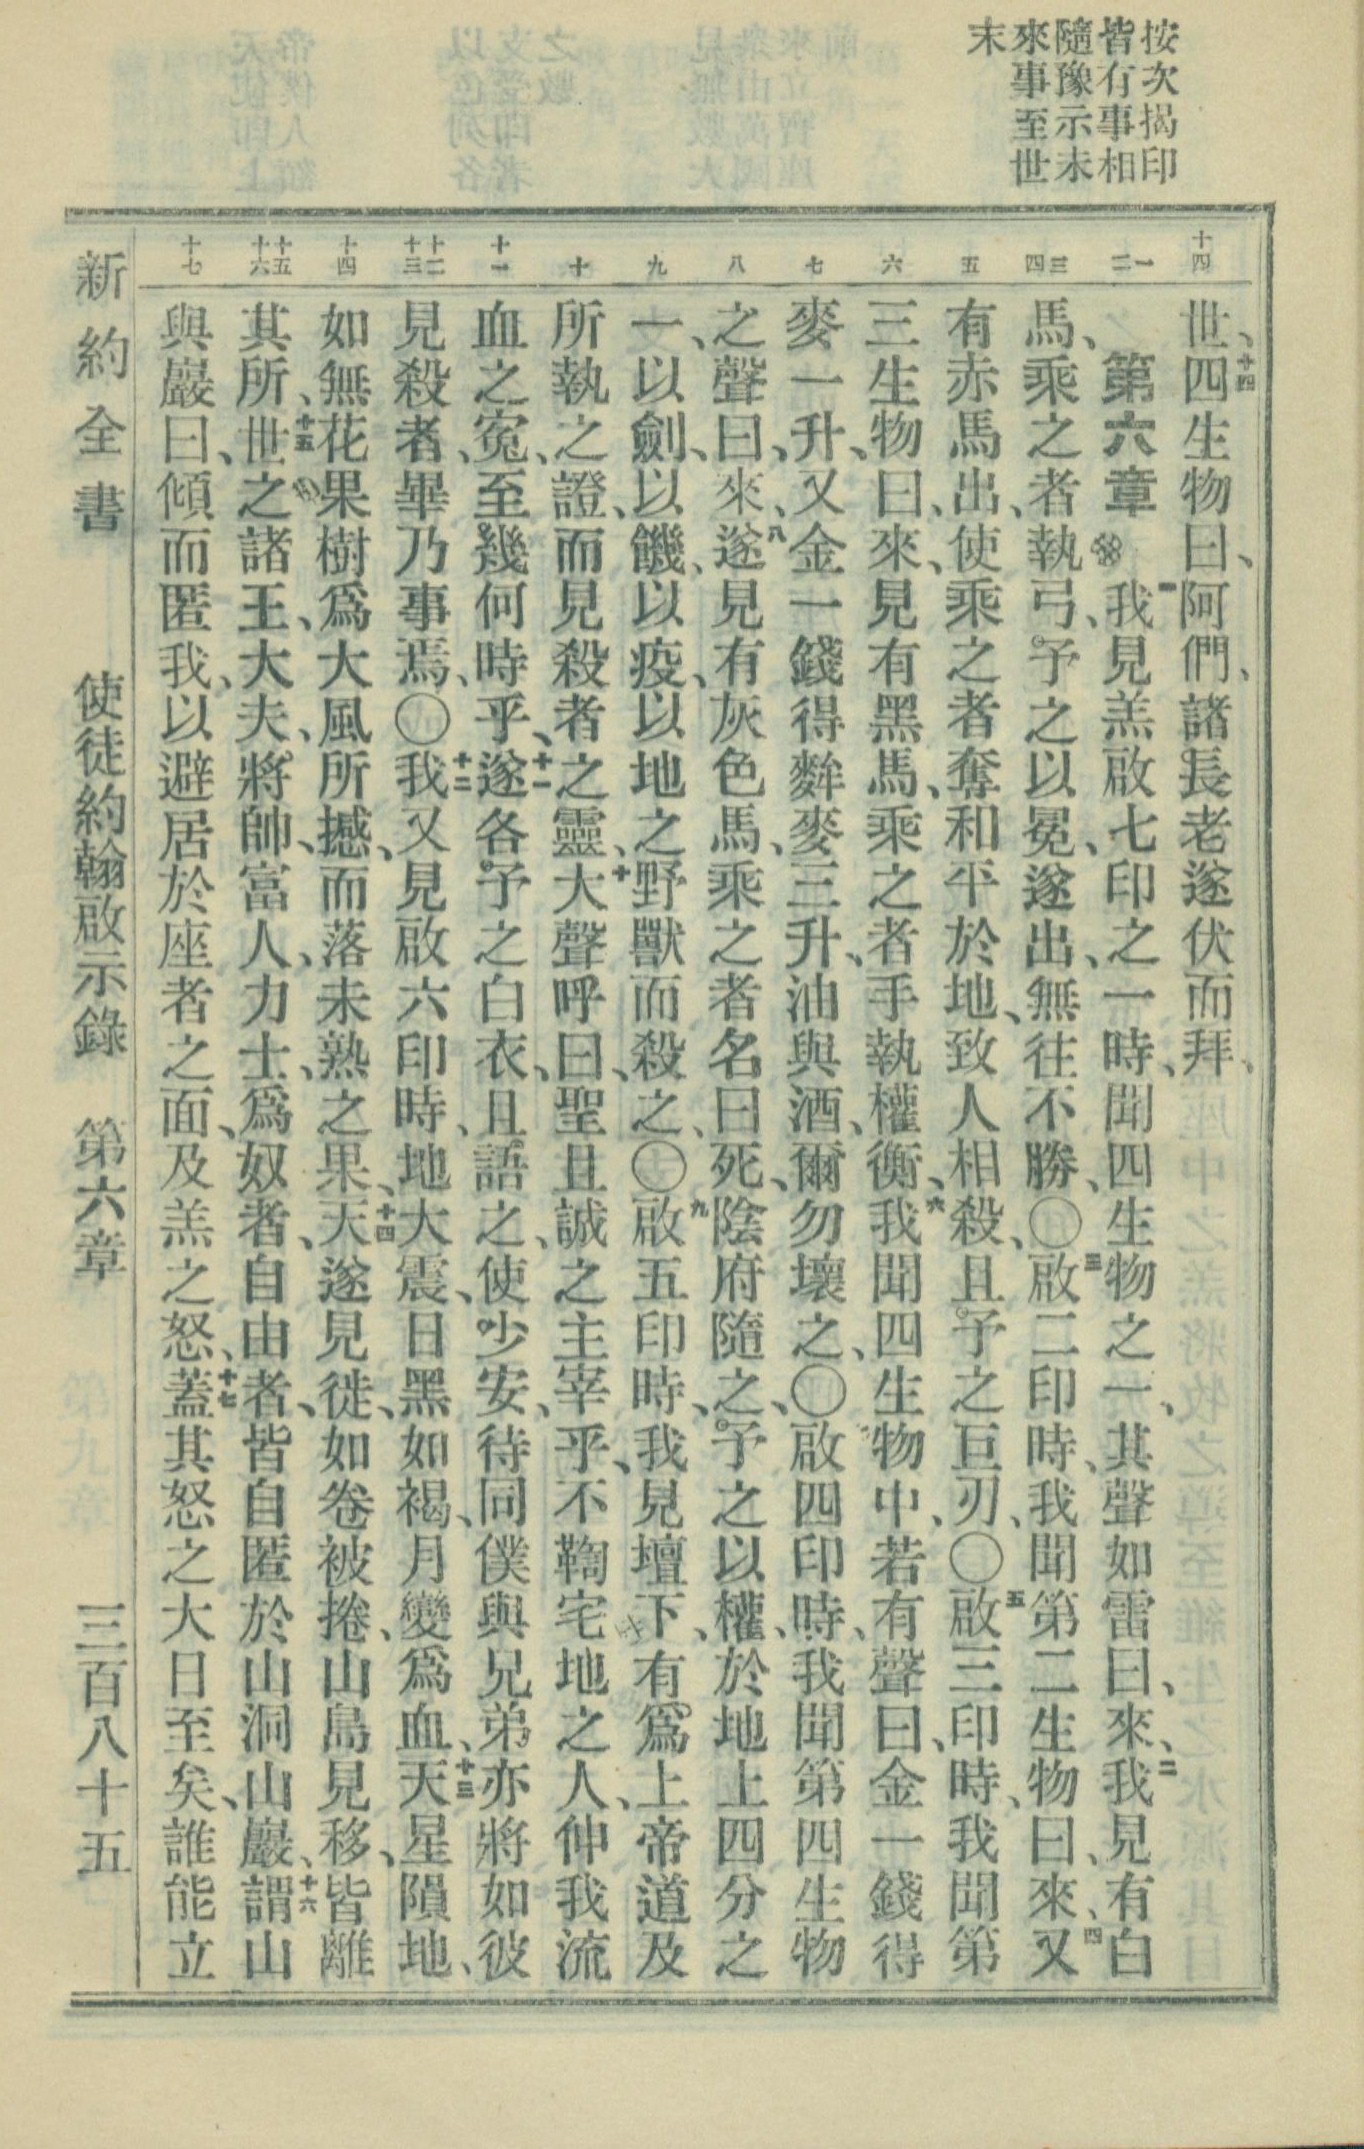 按次揭印
皆有事相
隨豫示未
來事至世
末
十四
一二
三四
五
六
七
八
九
十
十一
十二十三
十四
十五十六
十七
世、十四四生物曰、阿們、諸長老遂伏而拜、
第六章 一我見羔啟七印之一時、聞四生物之一、其聲如雷曰、來、二我見有白
馬、乘之者執弓、予之以冕、遂出、無往不勝、〇三啟二印時、我聞第二生物曰、來、四又
有赤馬出、使乘之者奪和平於地、致人相殺、且予之巨刃、〇五啟三印時、我聞第
三生物曰、來、見有黑馬、乘之者手執權衡、六我聞四生物中、若有聲曰、金一錢得
麥一升、又金一錢得麰麥三升、油與酒、爾勿壞之、〇啟四印時、我聞第四生物
之聲曰、來、八遂見有灰色馬、乘之者名曰死、陰府隨之、予之以權、於地上四分之
一、以劍、以饑、以疫、以地之野獸而殺之、〇九啟五印時、我見壇下、有爲上帝道及
所執之證、而見殺者之靈、十大聲呼曰、聖且誠之主宰乎、不鞫宅地之人、伸我流
血之寃、至幾何時乎、十一遂各予之白衣、且語之、使少安、待同僕與兄弟、亦將如彼
見殺者、畢乃事焉、〇十二我又見啟六印時、地大震、日黑如褐、月變爲血、十三天星隕地、
如無花果樹爲大風所撼、而落未熟之果、十四天遂見徙、如卷被捲、山島見移、皆離
其所、十五世之諸王、大夫、將帥、富人、力士、爲奴者、自由者、皆自匿於山洞山巖、十六謂山
與巖曰、傾而匿我、以避居於座者之面、及羔之怒、十七蓋其怒之大日至矣、誰能立
新約全書 使徒約翰啟示錄 第六章 三百八十五